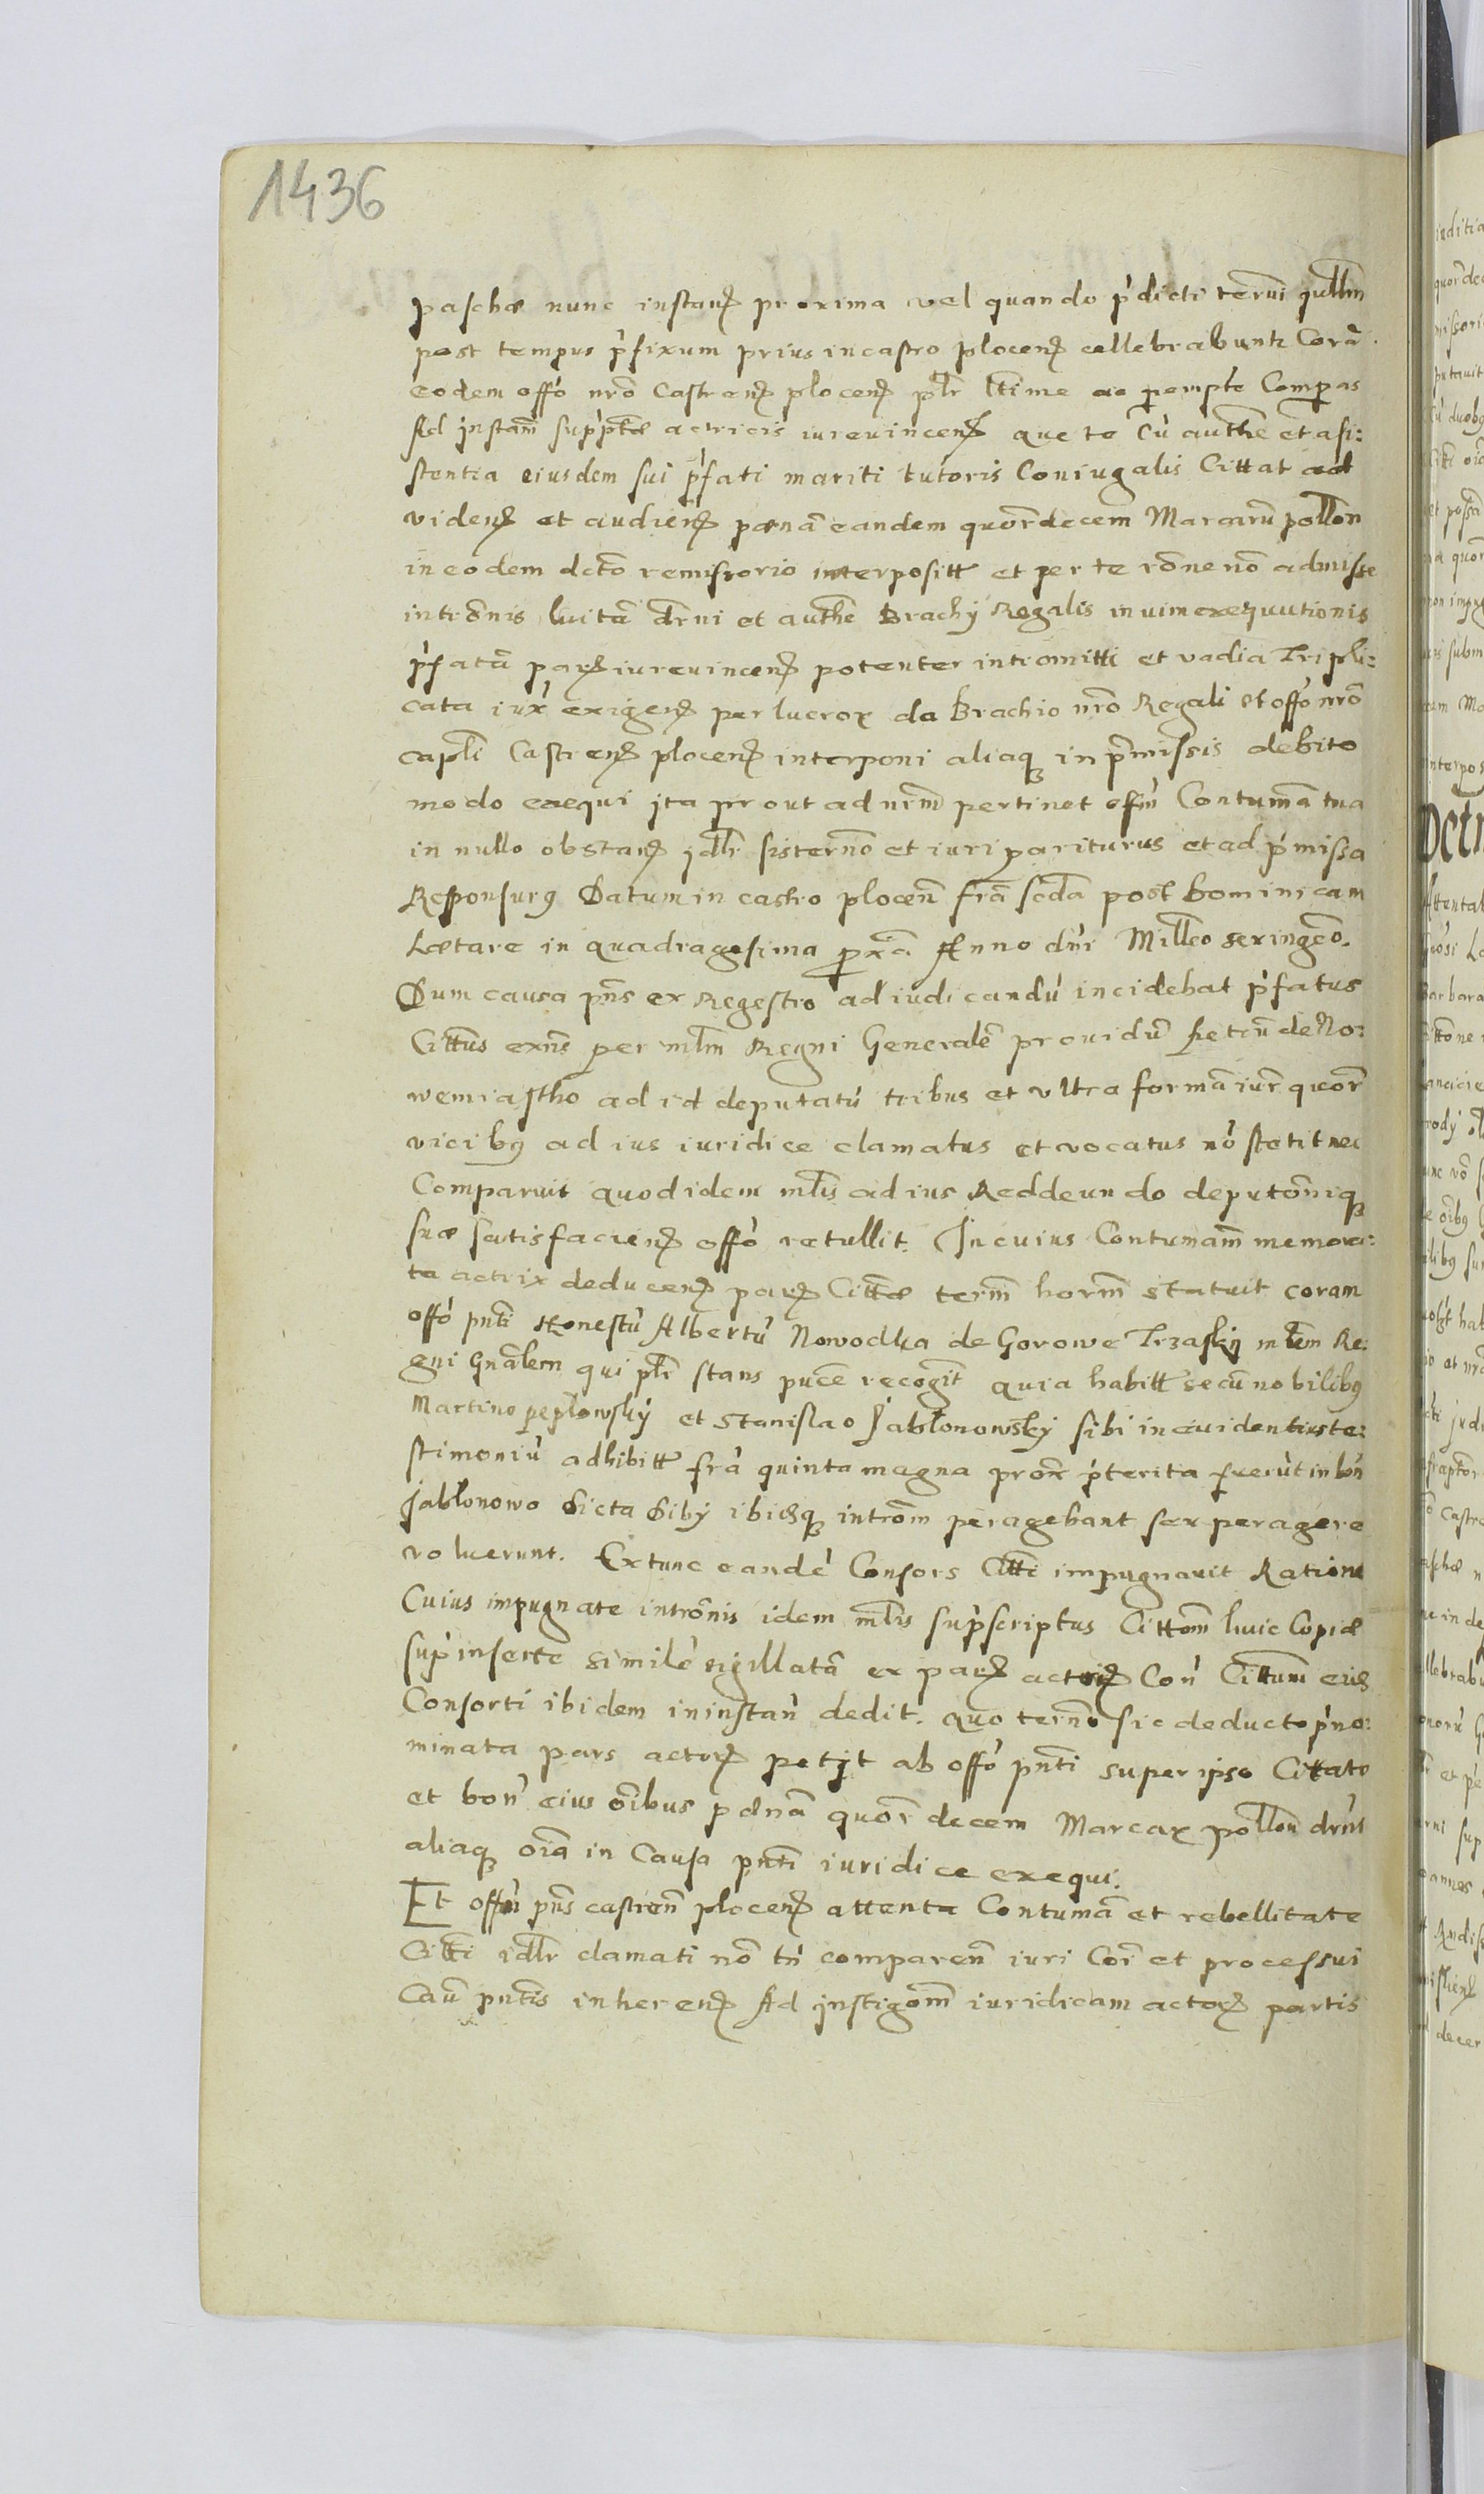 1436
paschae nunc instan proxima vel quando pdicti termi qullm
post tempus pfixum prius in castro plocen cellebrabuntr Corã
eodem offo nro Castren plocen plr ltime ac pempte Compas
Ad jnstam suppte actricis iurevincen que te Cu authe et asi:
stentia eiusdem sui pfati mariti tutoris Coniugalis Cittat ad
viden et audien paenã eandem quordecem Marcarũ pollon
in eodem dcto remissorio interpositt et per te rõne nõ admisse
intrõnis luitã drni et authe Brachy Regalis in vim exequutionis
pfatã part iurevincen potenter intromitti et vadia Tripli:
cata iux exigen per lucror da Brachio nro Regali et offo nro
capli Castren plocen interponi aliaq in pmissis debito
modo exequi jta prout ad nrm pertinet ofm Contumã tua
in nullo obstan jdlr sisterno et iuri pariturus et ad pmissa
Responsurg Datum in castro plocen friã scda post Dominicam
Laetare in quadragesima pxã Anno dni Milleo sexingeo.
Dum causa pns ex Regestro ad iudicandu incidebat pfatus
Cittus exns per mlm Regni Generalẽ prouidũ Petrũ de No:
wemiastho ad id deputatu tribus et vltra formã iur quor
vicibg ad ius iuridice clamatus et vocatus nõ stetit nec
Comparuit quod idem mlis ad ius Reddeundo deputõniq
suae satisfacien offo retullit. In cuius Contumam memora:
ta actrix deducen part Cittae term horm statuit coram
offo pnti Honestu Albertu Nowodka de Gorowe Trzasky mlem Re:
gni Gnalem qui plr stans puce recogit quia habitt secũ nobilibg
Martino peplowsky et Stanislao Jablonowsky sibi in euidentius te:
stimoniu adhibitt fra quinta magna prox pterita fuerũt in bon
Jablonowo dicta Diby ibidq intrõm peragebant seu peragere
voluerunt. Extunc eandẽ Consors Citti impugnauit Ratione
Cuius impugnate intrõnis idem mlis supscriptus Cittom huic Copiae
sup inserte similẽ sigillatã ex part actor Con Cittum eius
Consorti ibidem in instan dedit. quo terno sic deducto pno:
minata pars actor petijt ab offo pnti super ipso Citato
et bon eius oibus paenã quor decem Marcar pollon drnt
aliaq oia in Causa pnti iuridice exequi.
Et offm pns castren plocen attenta Contumã et rebellitate
Citti idlr clamati nõ tn comparen iuri Coi et processui
Caũ pntis inheren Ad jnstigom iuridicam actor partis